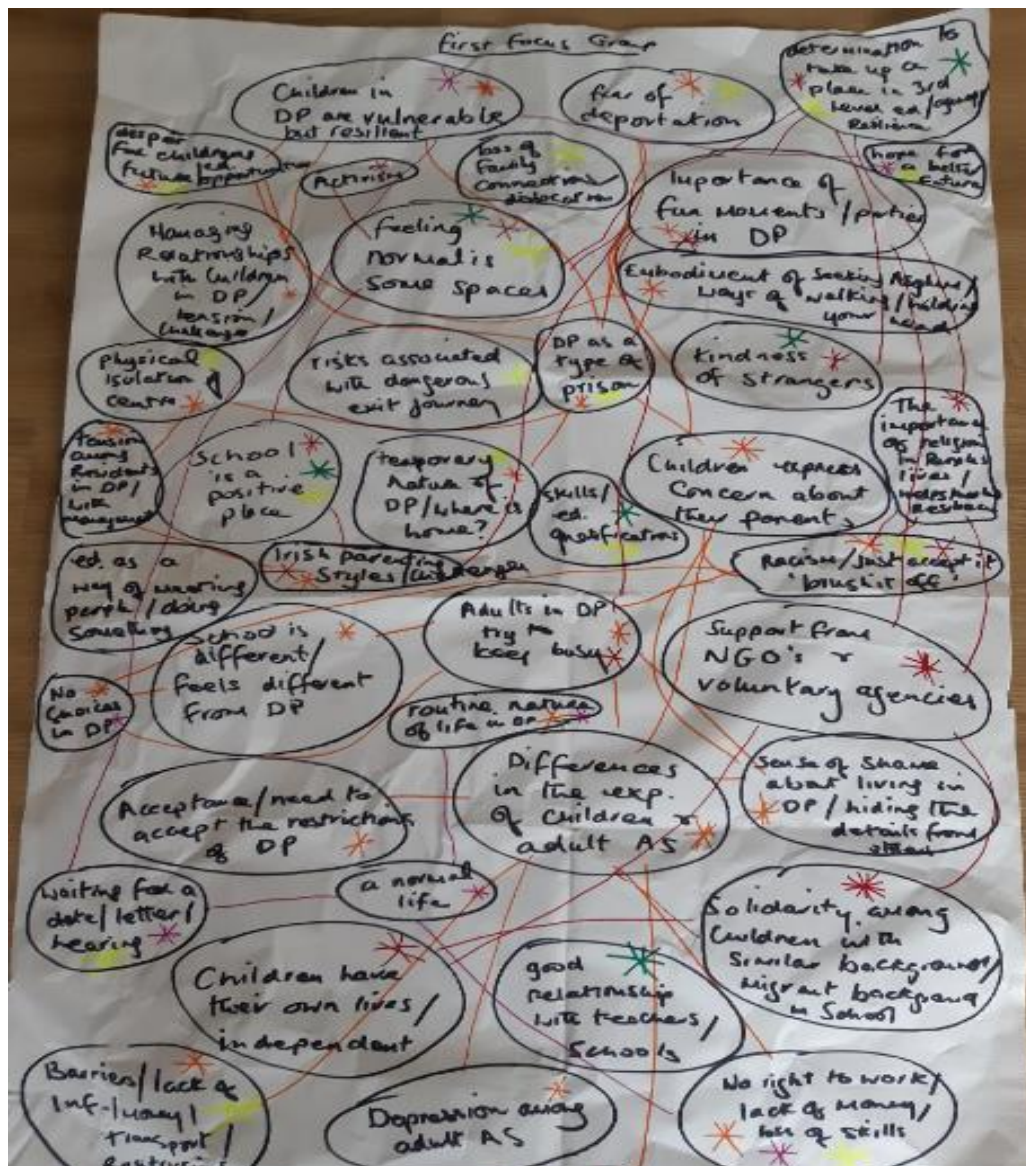 First Focus Group
Children in
DP are vulnerable
but resilient
fear of
deportation
determination to
take up a
place in 3rd
level ed/agency/
Resilience
despair
for childrens
future opportunities
Activism
loss of
family
connections
dislocation
Importance of
fun moments/parties
in DP
hope for
a better
future
Managing
Relationships
with Children
in DP/
tension/
challenges
feeling
normal is
Some spaces
Embodiment of Seeking Asylum/
ways of walking/holding
your head
Physical
isolation of
centre
risks associated
with dangerous
exit journey
DP as a
type of
prison
kindness
of strangers
tension
among
Residents
in DP/
with
management
School
is a
positive
place
temporary
nature of
DP/where is
home?
skills/
ed.
qualifications
Children express
Concern about
their parents
The
importance
of religion
in People's
lives/
Resilience
ed. as a
way of meeting
people/doing
Something
Irish parenting
Styles/challenges
Racism/Just accept it
'brush it off'
School is
different/
feels different
from DP
Adults in DP
try to
keep busy
Support from
NGO's &
voluntary agencies
No
Choices
in DP
routine nature
of life in DP
Acceptance/need to
accept the restrictions
of DP
Differences
in the exp.
of Children &
adult AS
Sense of Shame
about living in
DP/hiding the
details from
others
waiting for a
date/letter/
hearing
a normal
life
Solidarity among
Children with
Similar background/
migrant background
in School
Children have
their own lives/
independent
good
relationship
with teachers/
Schools
Barriers/lack of
Inf-/money/
transport/
Depression among
adult AS
No right to work/
lack of money/
loss of skills